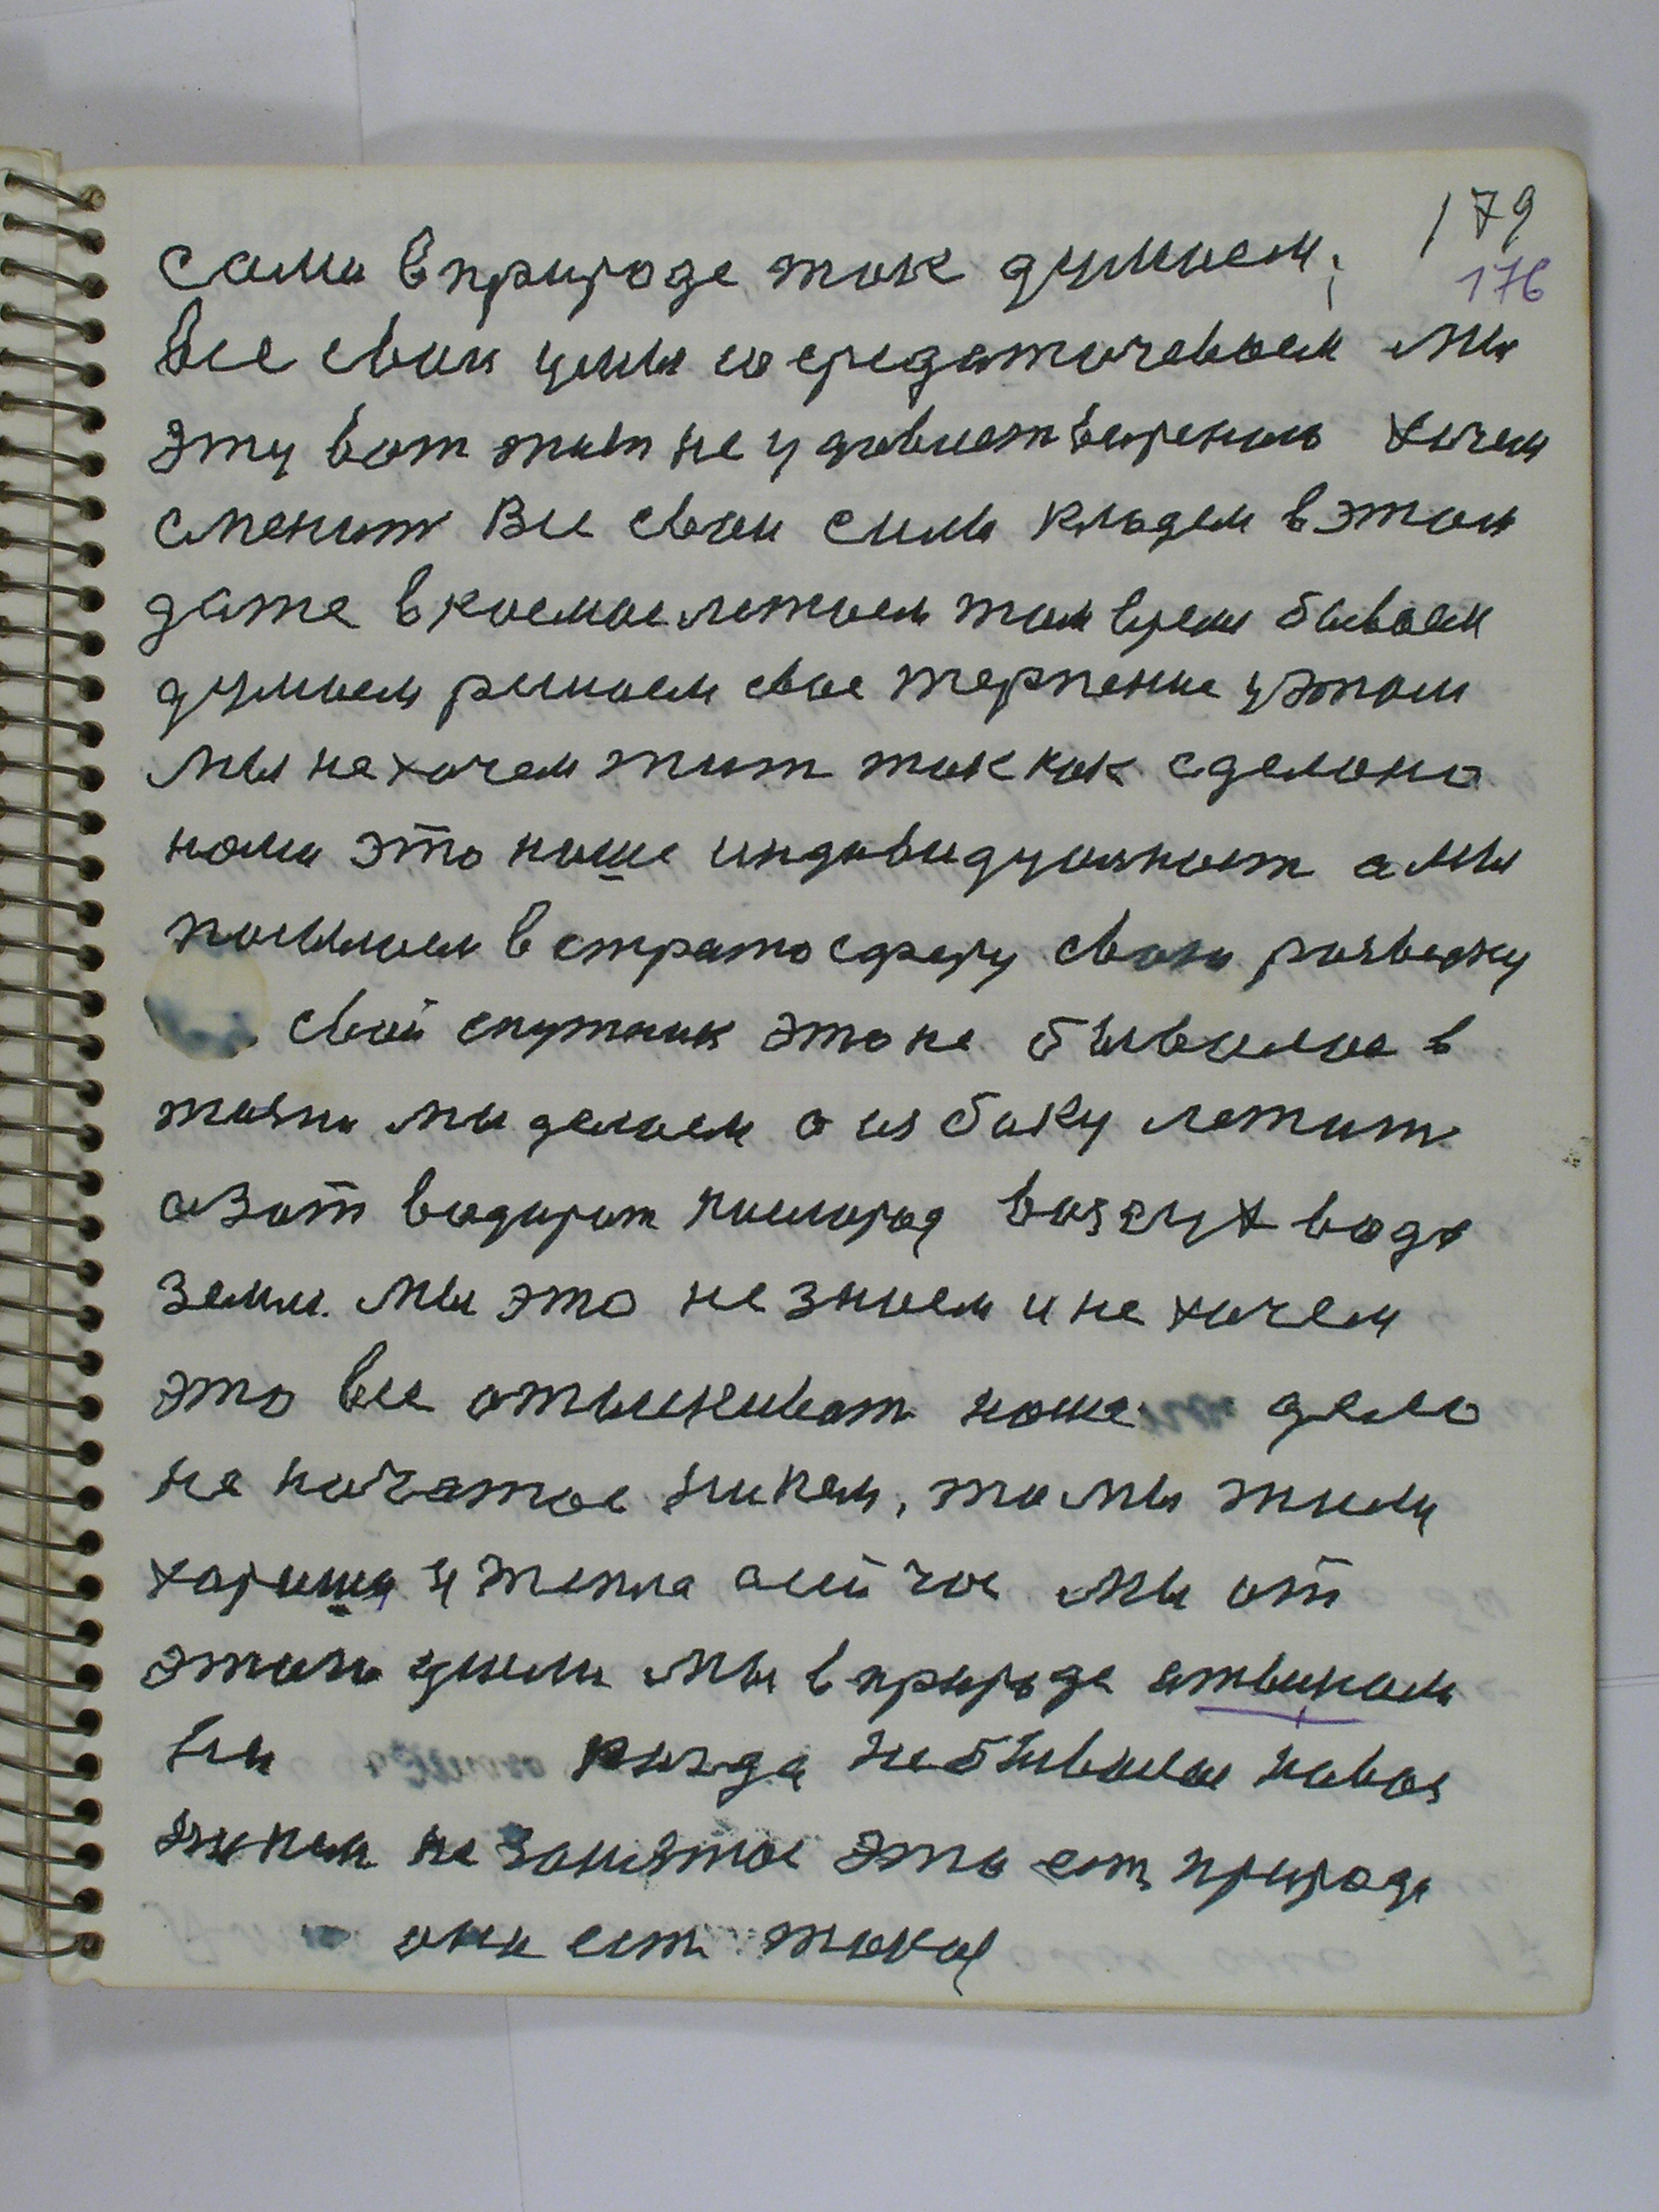 179
сами в природе так думаем,
176
все свои умы сосредаточеваем мы
эту вот жизн не удавлетвареною хочем
сменит Все свои силы кладем в этом
даже в космос летаем там время бываем
думаем решаем свое терпение у этом
мы не хочем жит так как сделано
нами это наше индивидуалност а мы
посылаем в стратосферу свою разветку
свой спутник это не бывалое в
жызни мы делаем а из баку летит
азот водарот кислород ваздух вода
земля. мы это не знаем и не хочем
это все отыскиват наше дело
не початое никем, то мы жили
хорошо у тепле а сейчас мы от
этого ушли мы в природе отыскали
никогда небывалое новое
никем не занятое это ест природа
она ест такая